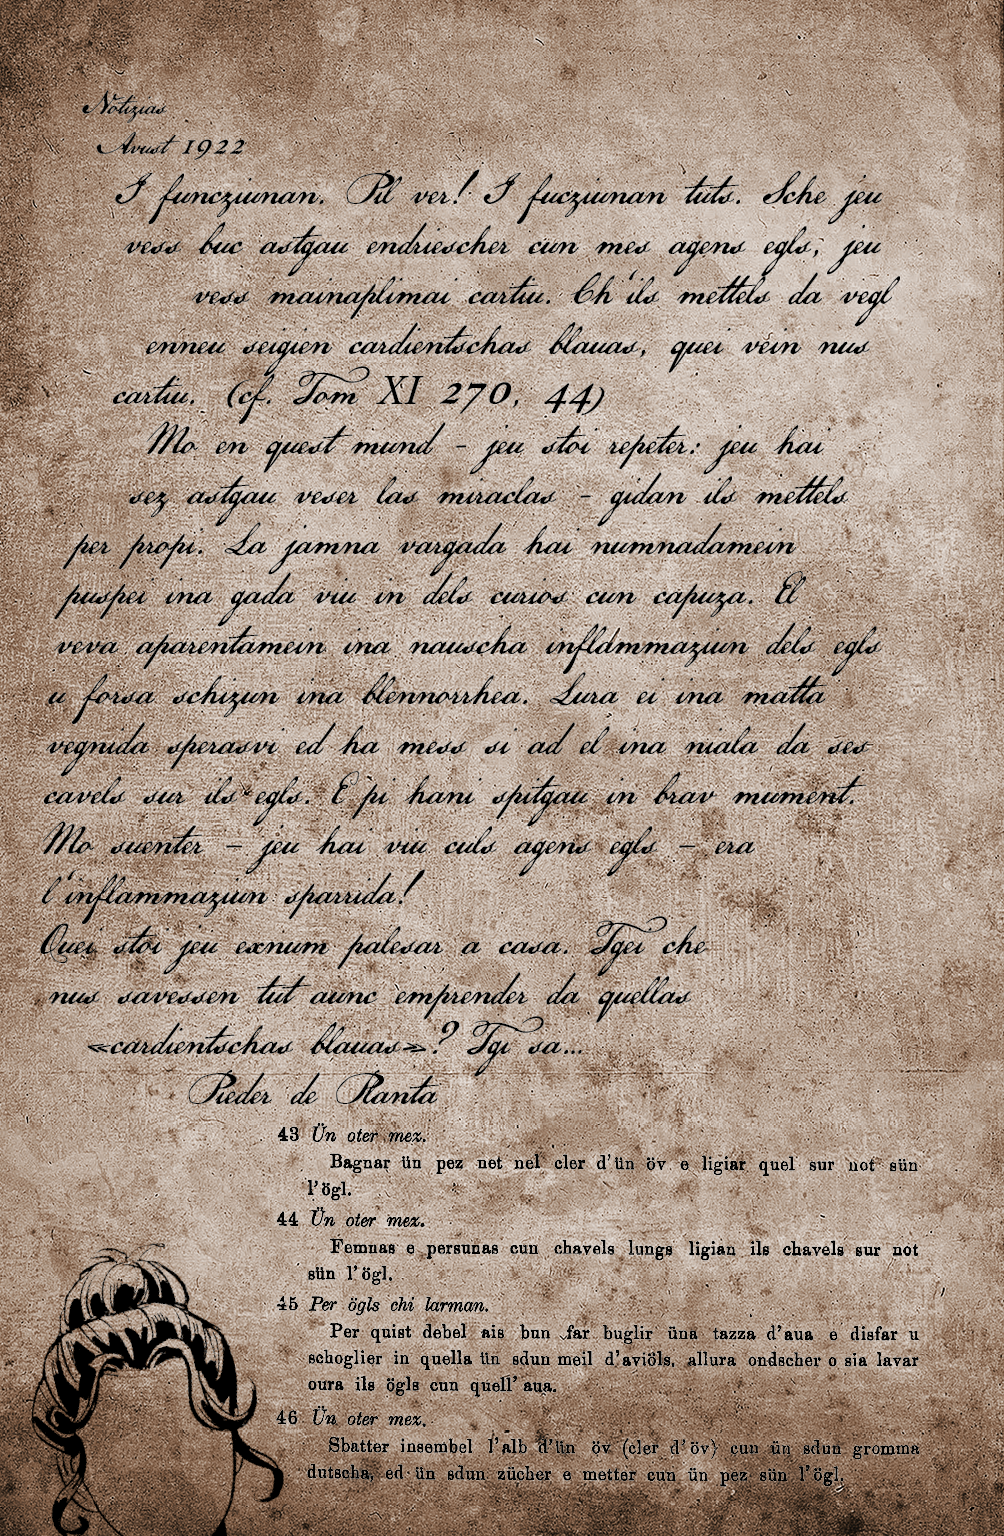 Notizias
Avust 1922
I funcziunan. Pil ver! I fucziunan tuts. Sche jeu
vess buc astgau endriescher cun mes agens egls, jeu
vess mainaplimai cartiu. Ch'ils mettels da vegl
enneu seigien cardientschas blauas, quei vein nus
cartiu. (cf. Tom XI 270, 44)
Mo en quest mund - jeu stoi repeter: jeu hai
sez astgau veser las miraclas - gidan ils mettels
per propi. La jamna vargada hai numnadamein
puspei ina gada viu in dels curios cun capuza. El
veva aparentamein ina nauscha infldmmaziun dels egls
u forsa schizun ina blennorrhea. Lura ei ina matta
vegnida sperasvi ed ha mess si ad el ina niala da ses
cavels sur ils egls. E pi hani spitgau in brav mument.
Mo suenter - jeu hai viu culs agens egls - era
l'inflammaziun sparrida!
Quei stoi jeu exnum palesar a casa. Tgei che
nus savessen tut aunc emprender da quellas
«cardientschas blauas»? Tgi sa...
Pieder de Planta
43 Ün oter mez.
Bagnar ün pez net nel cler d'ün öv e ligiar quel sur not sün
l'ögl.
44 Ün oter mez.
Femnas e persunas cun chavels lungs ligian ils chavels sur not
sün l'ögl.
45 Per ögls chi larman.
Per quist debel ais bun far buglir üna tazza d'aua e disfar u
schoglier in quella ün sdun meil d'aviöls, allura ondscher o sia lavar
oura ils ögls cun quell'aua.
46 Ün oter mez.
Sbatter insembel l'alb d'ün öv (cler d'öv) cun ün sdun gromma
dutscha, ed ün sdun zücher e metter cun ün pez sün l'ögl.